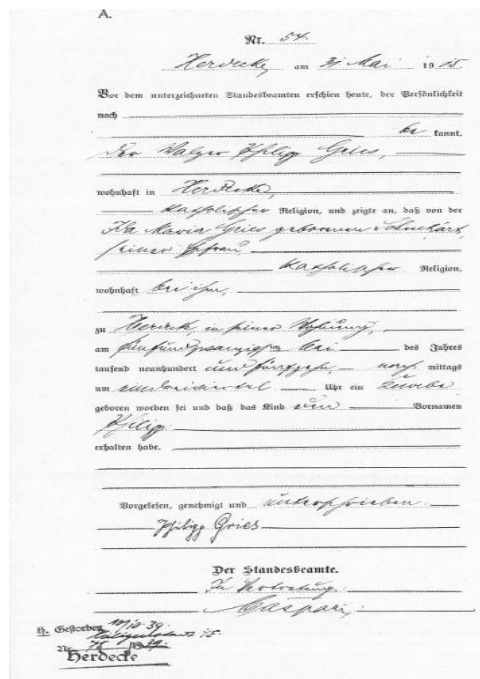 A.
Nr. 54.
Herdecke, am 31 Mai 1915.
Vor dem unterzeichneten Standesbeamten erschien heute, der Persönlichkeit
nach
be kannt,
der Walzer Philipp Gries,
wohnhaft in Herdecke,
katholischer Religion, und zeigte an, daß von der
Maria Gries geborenen
seiner Ehefrau,
katholischer Religion,
wohnhaft bei ihm,
zu Herdecke, in seiner Wohnung,
am fünfundzwanzigsten Mai des Jahres
tausend neunhundert und fünfzehn, nach mittags
um Uhr ein Knabe
geboren worden sei und daß das Kind den Vornamen
Philipp
erhalten habe.
Vorgelesen, genehmigt und unterschrieben.
Philipp Gries
Der Standesbeamte.
In Vertretung.
Caspari,
Gestorben 39.
Nr.
Herdecke